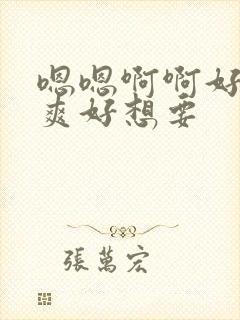 嗯嗯啊啊好
爽好想要
張萬宏